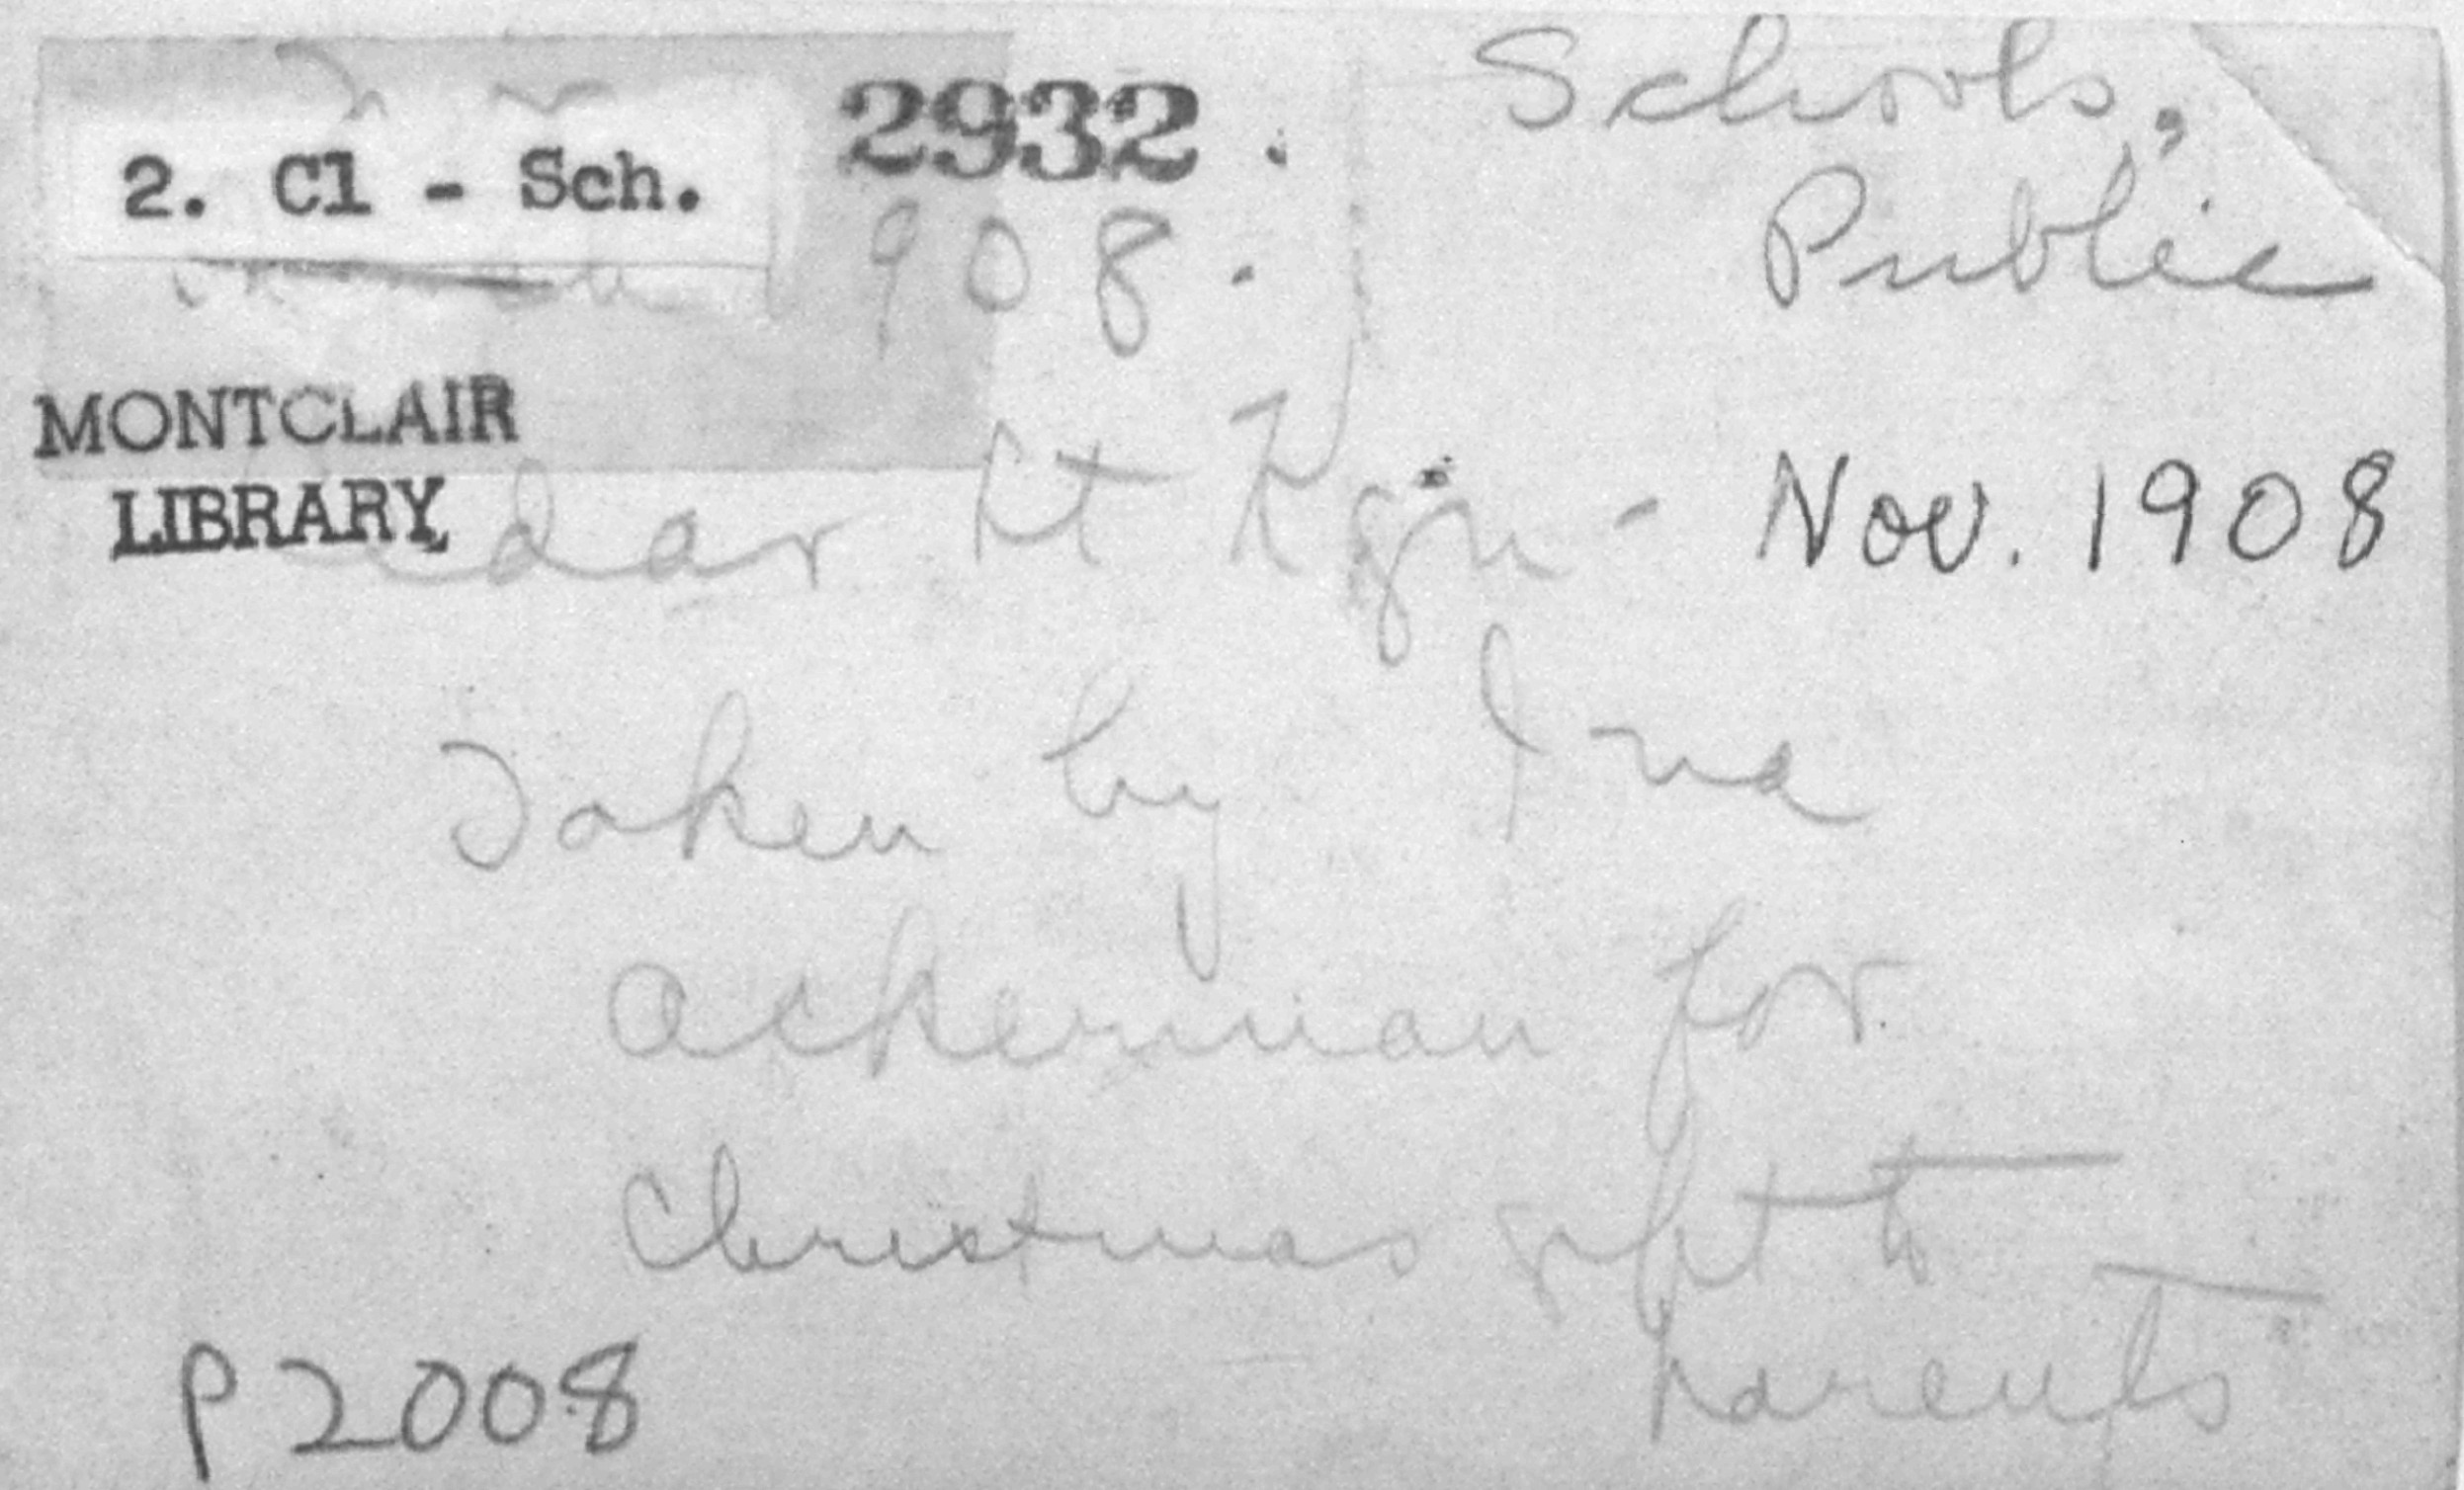 2. Cl - Sch.
2932.
908.
Schools,
Public
MONTCLAIR
LIBRARY
edar St Kgn - Nov. 1908
Taken by Ina
Ackerman for
Christmas gift to
parents
P2008